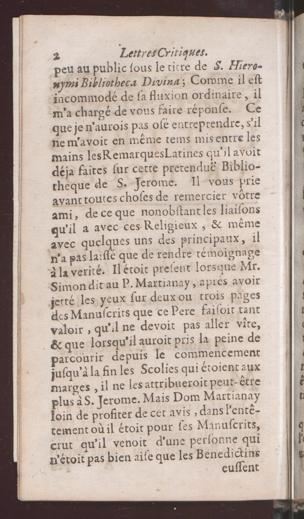 2 Lettres Critiques.
peu au public sous le titre de S. Hiero-
nymi Bibliotheca Divina; Comme il est
incommodé de sa fluxion ordinaire, il
m'a chargé de vous faire réponse. Ce
que je n'aurois pas ose entreprendre, s'il
ne m'avoit en même tems mis entre les
mains les Remarques Latines qu'il avoit
déja faites sur cette pretenduë Biblio-
theque de S. Jerome. Il vous prie
avant toutes choses de remercier vôtre
ami, de ce que nonobstant les liaisons
qu'il a avec ces Religieux, & même
avec quelques uns des principaux, il
n'a pas laissé que de rendre témoignage
à la verité. Il étoit present lorsque Mr.
Simon dit au P. Martianay, aprés avoir
jetté les yeux sur deux ou trois pages
des Manuscrits que ce Pere faisoit tant
valoir, qu'il ne devoit pas aller vîte,
& que lorsqu'il auroit pris la peine de
parcourir depuis le commencement
jusqu'à la fin les Scolies qui étoient aux
marges, il ne les attribueroit peut-être
plus à S. Jerome. Mais Dom Martianay
loin de profiter de cet avis, dans l'entê-
tement où il étoit pour ses Manuscrits,
crut qu'il venoit d'une personne qui
n'étoit pas bien aise que les Benedictins
eussent